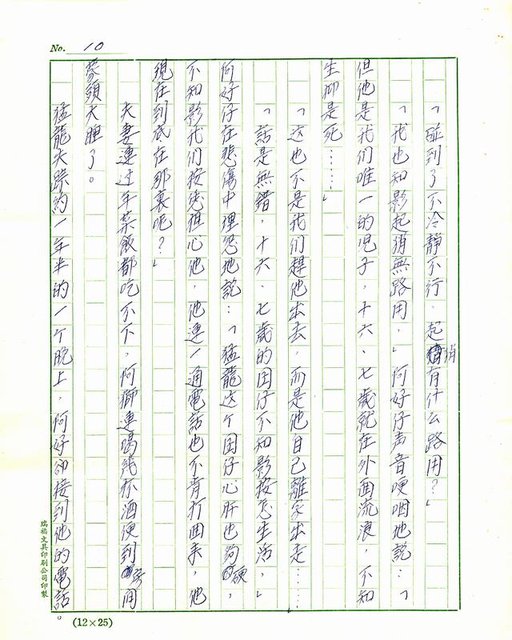 No. 10
「碰到了不冷靜不行，起消有什么路用？」
「我也知影起消無路用，」阿好仔声音哽咽地説：「
但他是我们唯一的児子，十六、七歲就在外面流浪，不知
生抑是死……」
「这也不是我们趕他出去，而是他自己離家出走……
「話是無錯，十六、七歲的囝仔不知影按怎生活，」
阿好仔在悲傷中埋怨地説：「猛龍这个囝仔心肝也夠硬，
不知影我们按怎担心他，他連一通電話也不肯打回来，他
現在到底在那裏吧？」
夫妻連过年菜飯都吃不下，阿獅連喝幾杯酒便到房间
蒙頭大睡了。
猛龍失踪約一年半的一个晚上，阿好卻接到他的電話。
(12×25)
文具印刷公司印製